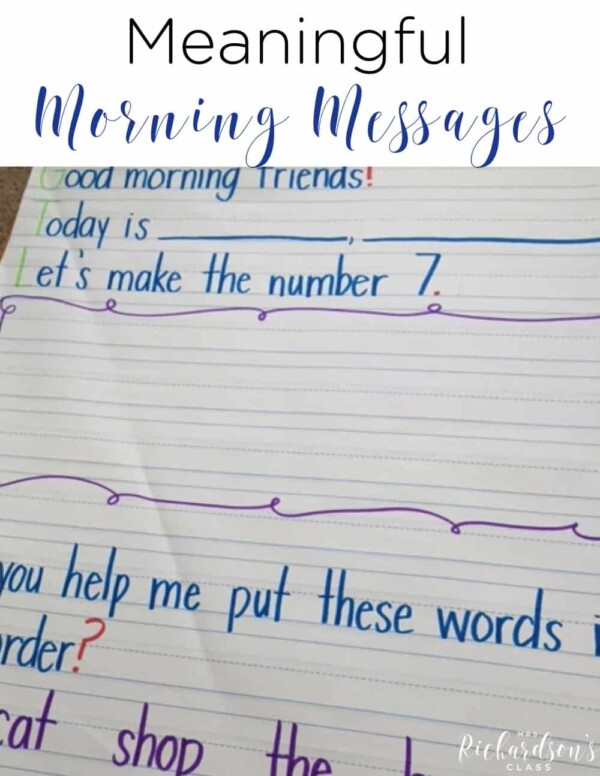 Meaningful
Morning Messages
Good morning friends!
Today is ____________, ____________
Let's make the number 7.
you help me put these words
order?
cat shop the
MRS
Richardson's
CLASS